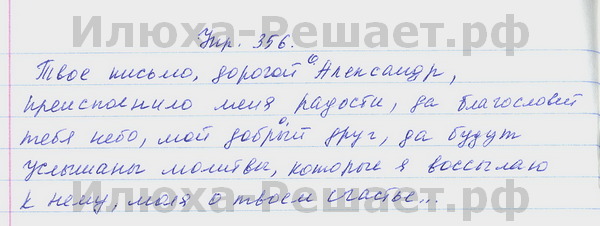 Илюха-Решает.рф
Упр. 356.
Твое письмо, дорогой Александр,
преисполнило меня радости, да благословей
тебя небо, мой добрый друг, да будут
услышаны молитвы, которые я воссылаю
к нему, моля о твоем счастье...
Илюха-Решает.рф